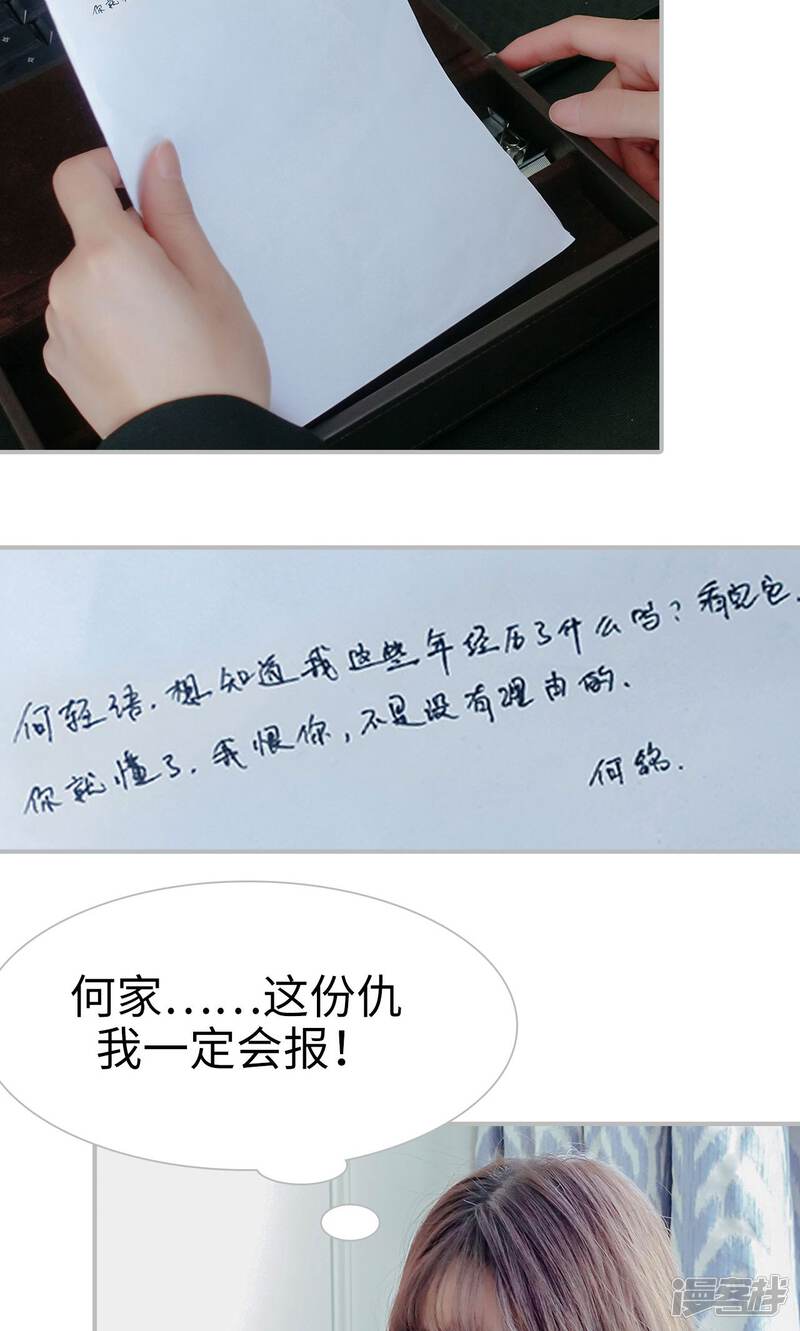 你就
何轻语.想知道我这些年经历了什么吗?看完它.
你就懂了.我恨你,不是没有理由的.
何
何家……这份仇
我一定会报!
漫客栈